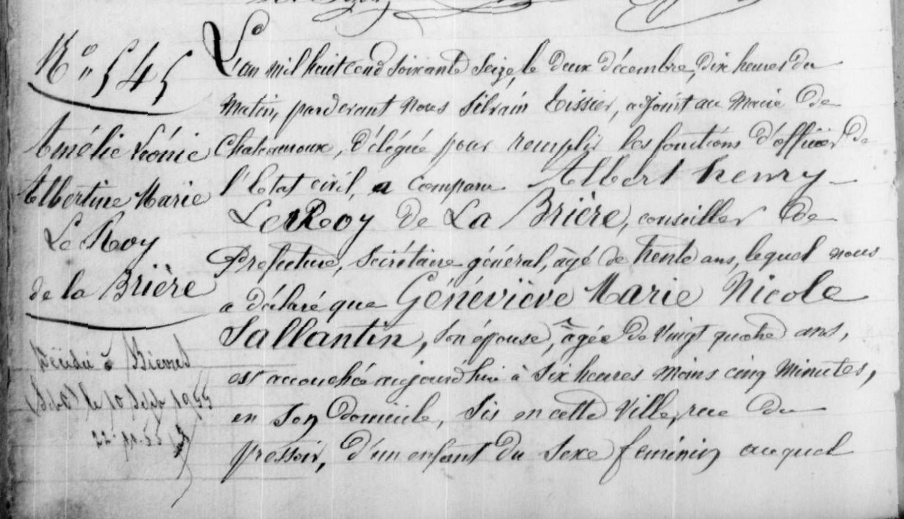 N° 545
Amélie Léonie
Albertine Marie
Le Roy
de la Brière
Décédée à Bièvres
le 10 Sept 1955
L'an mil huit cent soixante seize, le deux décembre, dix heures du
matin, pardevant nous Silvain Tissier, adjoint au Maire de
Chateauroux, délégué pour remplir les fonctions d'officier de
l'Etat civil, a comparu Albert henry
Le Roy de La Brière, conseiller de
Préfecture, Secrétaire général, agé de trente ans, lequel nous
a déclaré que Généviève Marie Nicole
Sallantin, son épouse, agée de vingt quatre ans,
est accouchée aujourd'hui à six heures moins cinq minutes,
en son domicile, sis en cette ville, rue du
pressoir, d'un enfant du sexe feminin auquel